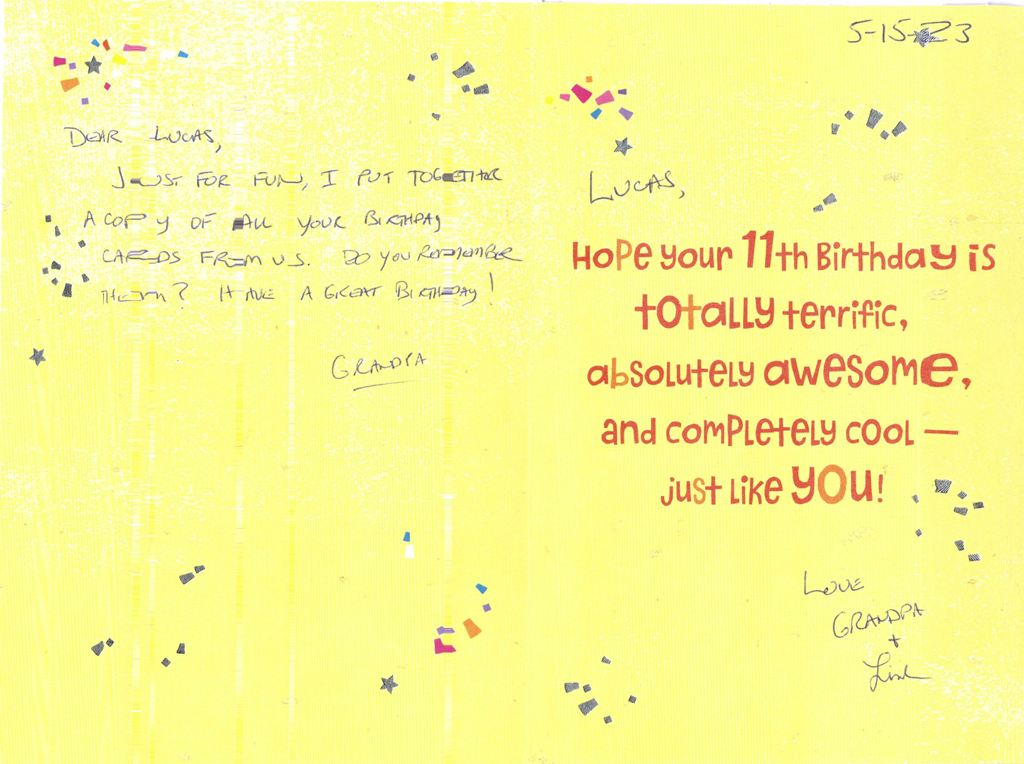 DEAR LUCAS,
JUST FOR FUN, I PUT TOGETHER
A COPY OF ALL YOUR BIRTHDAY
CARDS FROM US. DO YOU REMEMBER
THEM? HAVE A GREAT BIRTHDAY!
GRANDPA
5-15-23
LUCAS,
Hope your 11th Birthday is
totally terrific,
absolutely awesome,
and completely cool —
just like you!
LOVE
GRANDPA
+